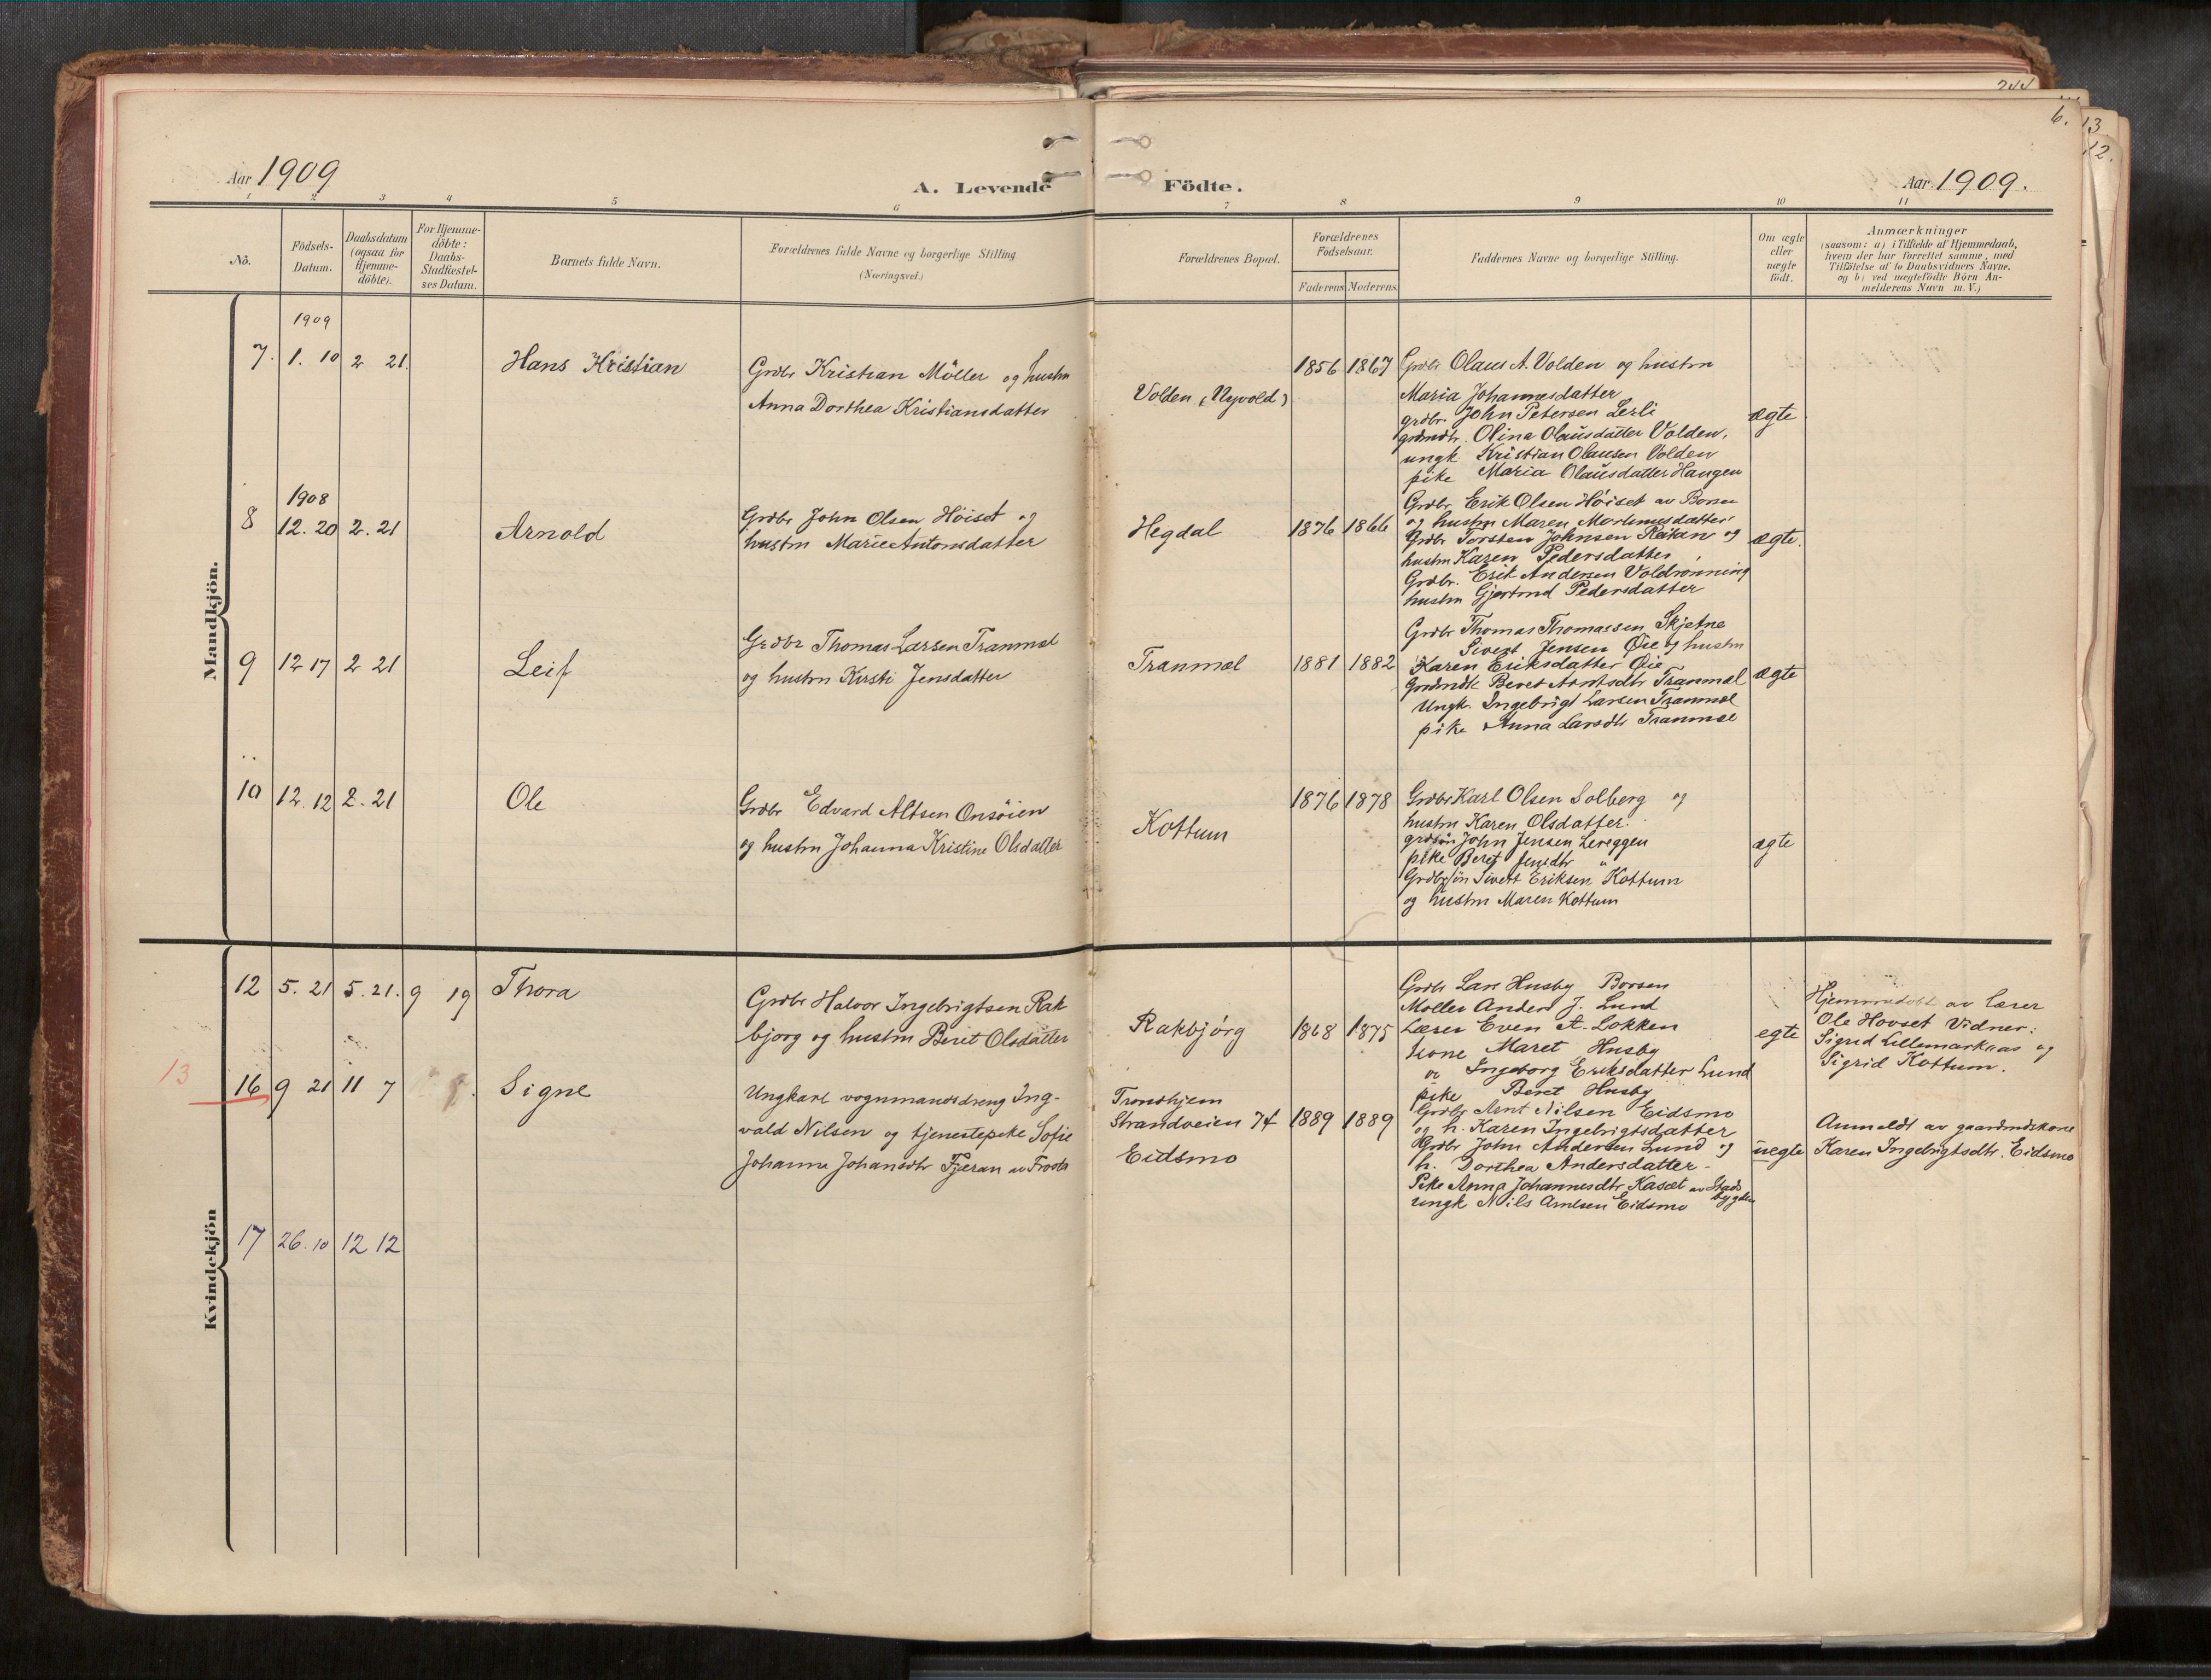 244
6.
13
12.
Aar 1909
A. Levende Födte.
Aar 1909.
1 2 3 4 5 6 7 8 9 10 11
No.
Födsels-
Datum.
Daabsdatum
(ogsaa for
Hjemme-
döbte).
For Hjemme-
döbte:
Daabs-
Stadfæstel-
ses Datum.
Barnets fulde Navn.
Forældrenes fulde Navne og borgerlige Stilling
(Næringsvei.)
Forældrenes Bopæl.
Forældrenes
Födselsaar.
Faderens Moderens
Faddernes Navne og borgerlige Stilling.
Om ægte
eller
uægte
födt.
Anmærkninger
(saasom: a) i Tilfælde af Hjemmedaab,
hvem der har forrettet samme, med
Tilföielse af to Daabsvidners Navne.
og b) ved uægtefödte Börn An-
melderens Navn m. V.)
Mandkjön.
1909
7. 1. 10 2 21.
Hans Kristian
Grdbr Kristian Möller og hustru
Anna Dorthea Kristiansdatter
Volden (Nyvold)
1856 1867
Grdbr Olaus A. Volden og hustru
Maria Johannesdatter
grdbr. John Petersen Lerli
grdmdtr. Olina Olausdatter Volden,
ungk Kristian Olausen Volden
pike Maria Olausdatter Haugen
ægte
1908
8 12. 20 2. 21
Arnold
Grdbr John Olsen Höiset og
hustru Marie Antonsdatter
Hegdal
1876 1866
Grdbr Erik Olsen Höiset av Børsen
og hustru Maren Martinusdatter
Grdbr Torsten Johnsen Raitan og
hustru Karen Pedersdatter,
Grdbr. Erik Andersen Voldrönning
hustru Gjertrud Pedersdatter
ægte.
9 12 17 2 21
Leif
Grdbr Thomas Larsen Tranmæl
og hustru Kirsti Jensdatter
Tranmæl
1881 1882
Grdbr Thomas Thomassen Skjetne
Sivert Jensen Øie og hustru
Karen Eriksdatter Øie
Grdmdk Beret Arntsdtr Tranmæl
Ungk. Ingebrigt Larsen Tranmæl
pike Anna Larsdtr Tranmæl
ægte
10 12. 12 2. 21
Ole
Grdbr Edvard Altsen Onsöien
og hustru Johanna Kristine Olsdatter
Kottum
1876 1878
Grdbr Karl Olsen Solberg og
hustru Karen Olsdatter.
grdsøn John Jensen Lereggen
pike Beret Jensdtr "
Grdbrsön Sivert Eriksen Kottum
og hustru Maren Kottum
ægte
Kvindekjön
12 5. 21 5. 21. 9 19
Thora
Grdbr Halvor Ingebrigtsen Rak
bjørg og hustru Beret Olsdatter
Rakbjórg
1868 1875
Grdbr Lars Husby Børsen
Møller Anders J. Lund
Lærer Even A. Løkken
kone Maret Husby
" Ingeborg Eriksdatter Lund
pike Beret Husby
egte
Hjemmedøbt av lærer
Ole Hovset Vidner:
Sigrid Lillemarkaas og
Sigrid Kottum.
13
16 9 21 11 7
Signe
Ungkarl vognmandsdreng Ing-
vald Nilsen og tjenestepike Sofie
Johanna Johansdtr Fjeran av Frosta
Tronhjem
Strandveien 74
Eidsmo
1889 1889
Grdbr Arnt Nilsen Eidsmo
og h. Karen Ingebrigtsdatter
Grdbr John Andersen Lund og
h. Dorthea Andersdatter.
Pike Anna Johannesdtr Kasæt av Stads
bygden
ungk Nils Arntsen Eidsmo
uegte
Anmeldt av gaardmdskone
Karen Ingebrigtsdtr. Eidsmo
17 26. 10 12 12